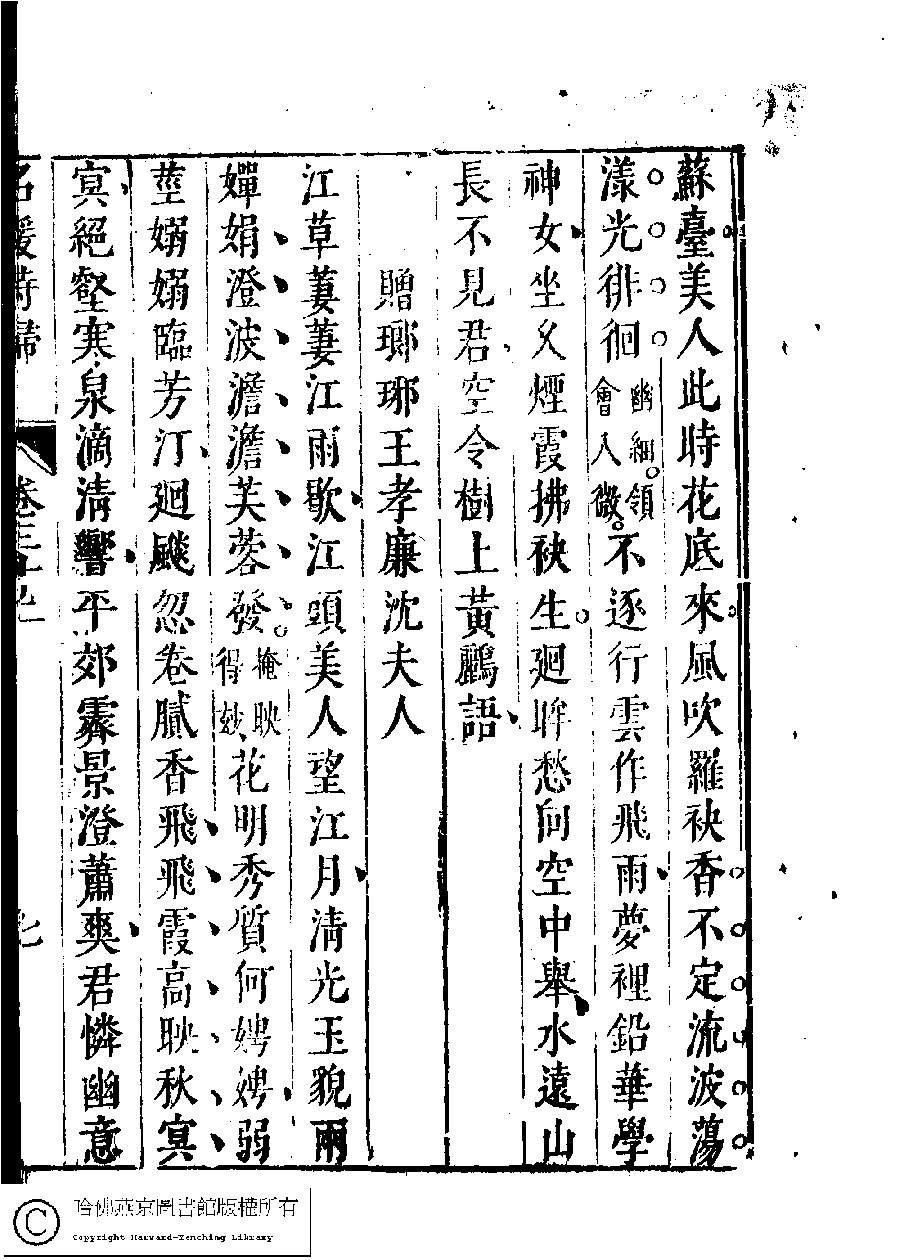 蘇臺美人此時花底來風吹羅袂香不定流波蕩
漾光徘徊幽細領會入微不逐行雲作飛雨夢裡鉛華學
神女坐久煙霞拂袂生廻眸愁向空中舉水遠山
長不見君空令樹上黃鸝語
贈瑯琊王孝廉沈夫人
江草萋萋江雨歇江頭美人望江月清光玉貌兩
嬋娟澄波澹澹芙蓉發掩映得玅花明秀質何娉娉弱
莖嫋嫋臨芳汀廻飈忽卷膩香飛飛霞高映秋冥
冥絕壑寒泉滴清響平郊霽景澄蕭爽君憐幽意
名媛詩歸
卷三十
哈佛燕京圖書館版權所有
Copyright Harvard-Yenching Library